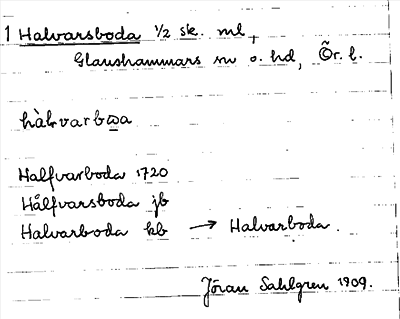 1 Halvarsboda 1/2 sk. ml,
Glanshammars sn o. hd, Ör. l.
Halfvarboda 1720
Hålfvarsboda jb
Halvarboda kb → Halvarboda.
Jöran Sahlgren 1909.